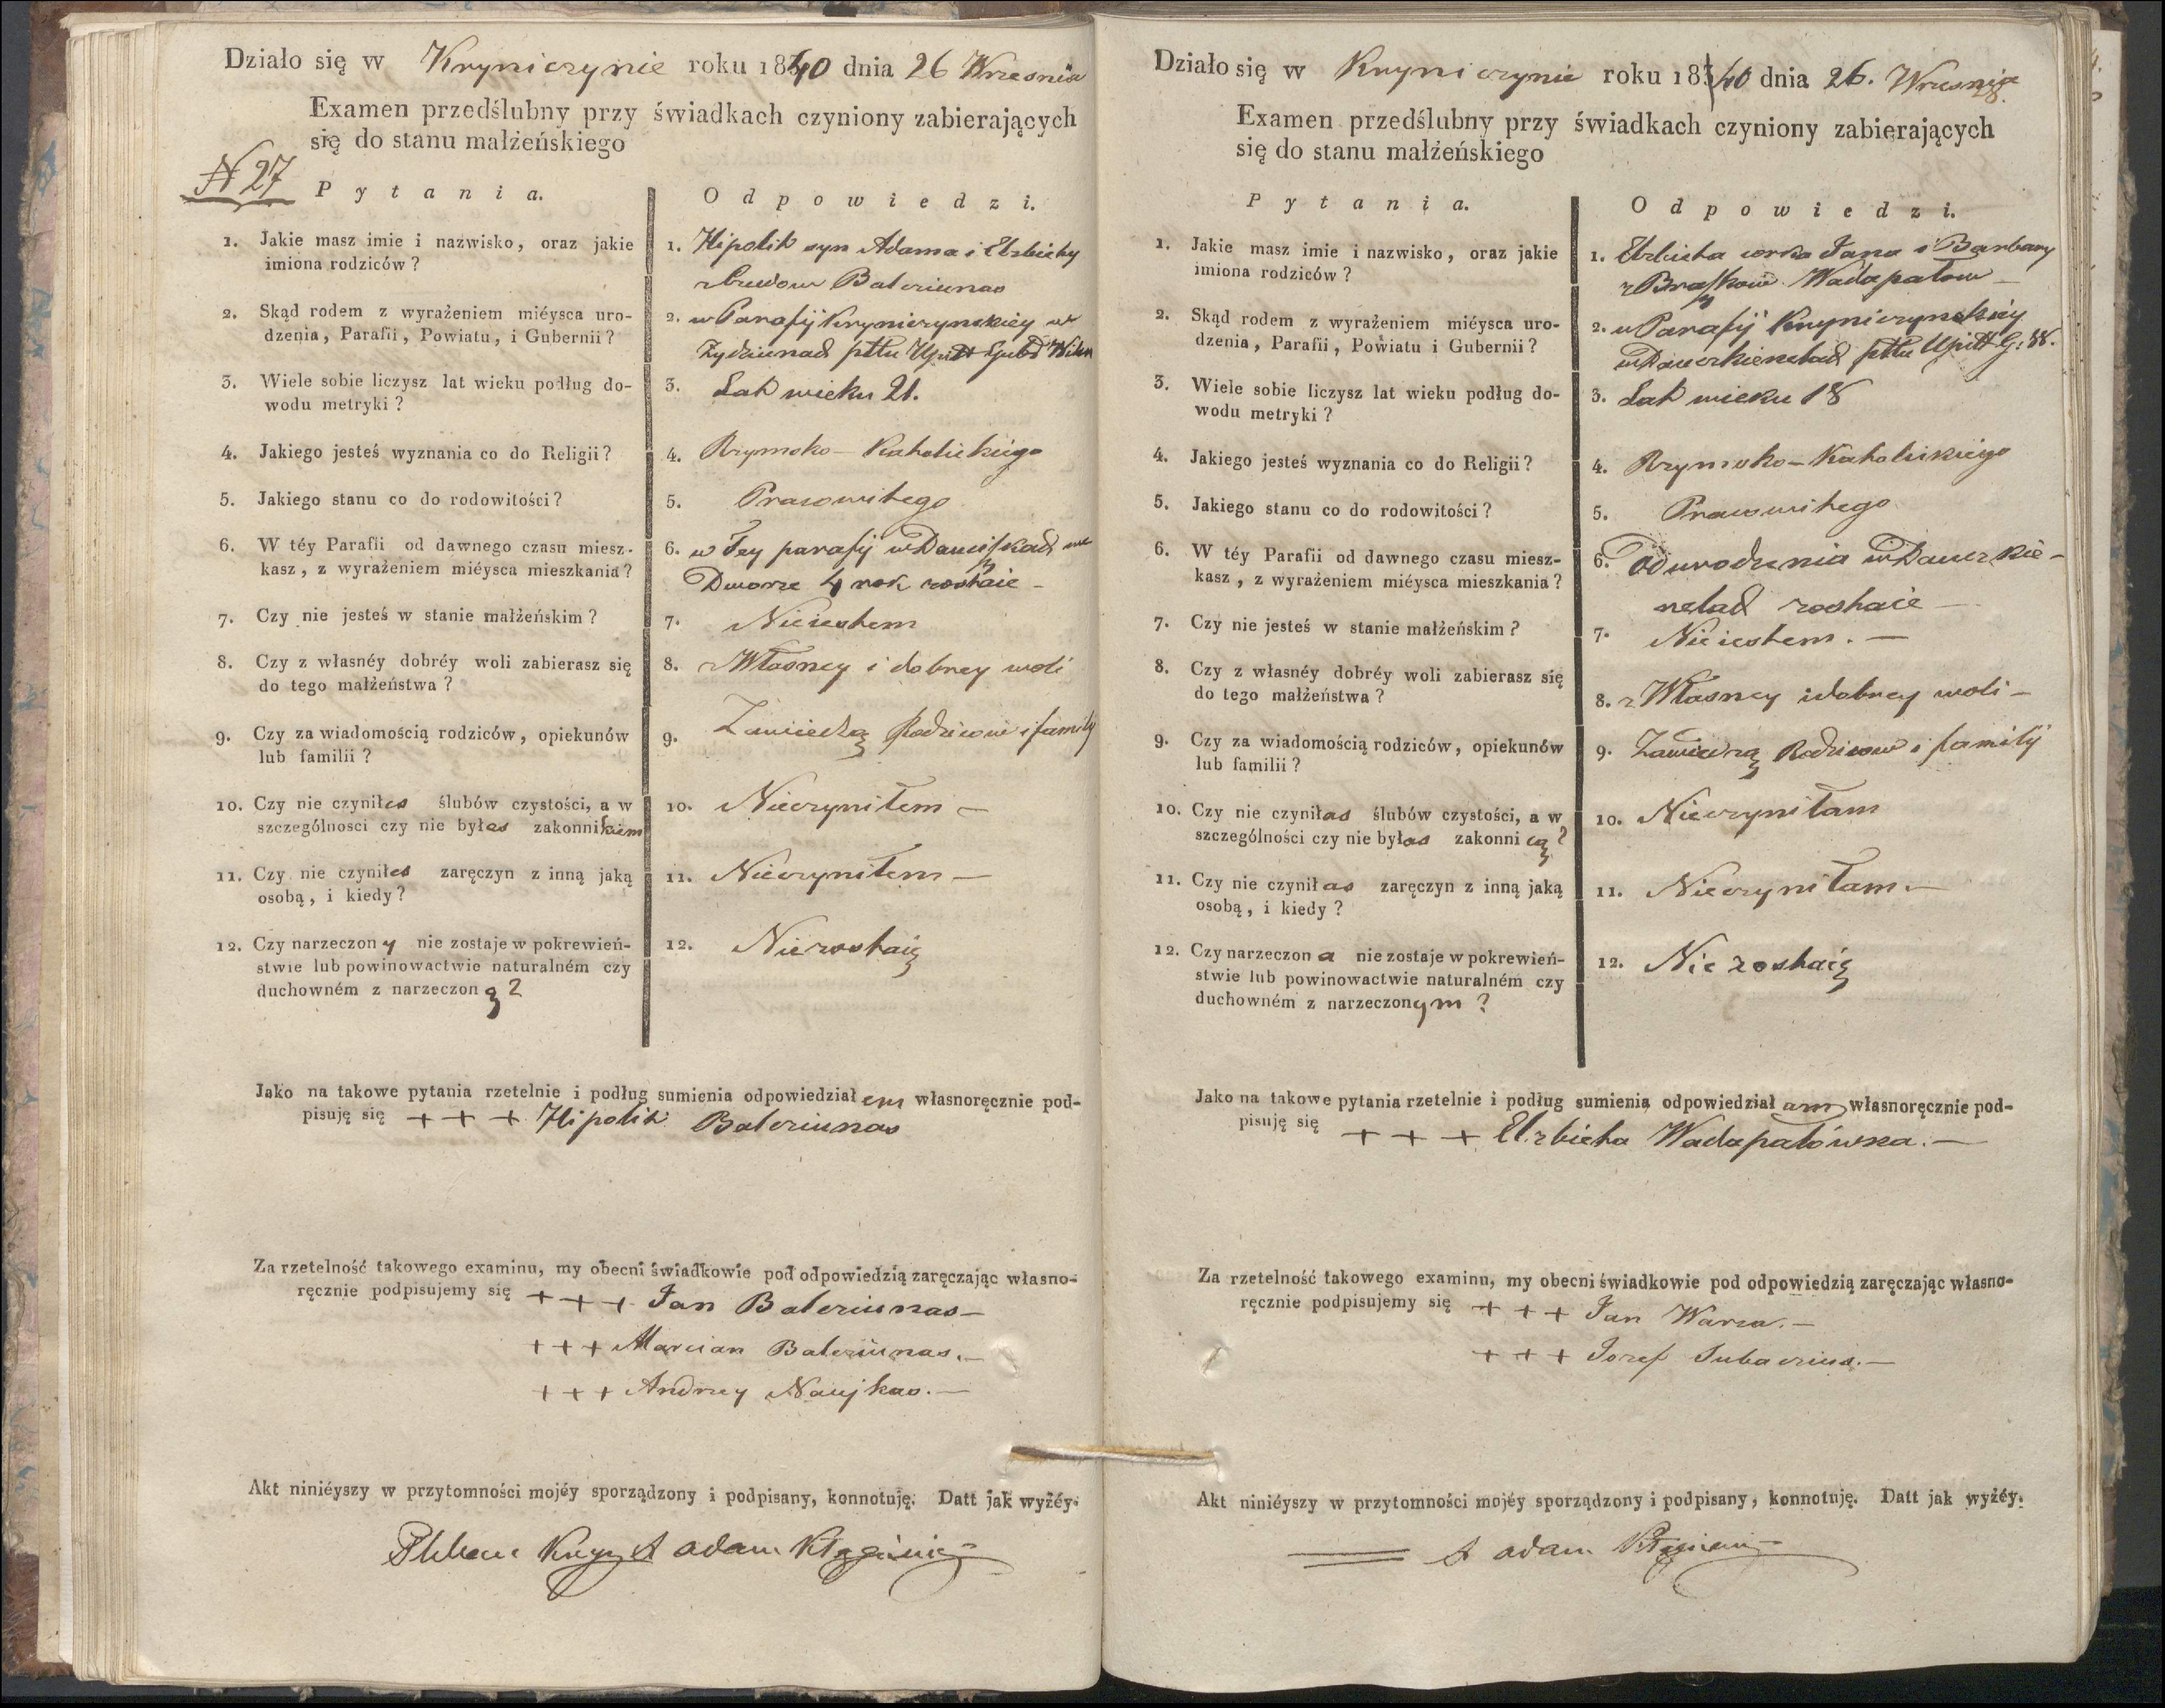 Działo się w Kryniczynie roku 1840 dnia 26 Wrzesnia
Examen przedślubny przy świadkach czyniony zabierających
się do stanu małżeńskiego
N 27
Pytania.
Odpowiedzi.
1. Jakie masz imie i nazwisko, oraz jakie
imiona rodziców?
1. Hipolit syn Adama i Elzbiety
Baleriunas
2. Skąd rodem z wyrażeniem miéysca uro-
dzenia, Parafii, Powiatu, i Gubernii?
2. w Parafij Kryniczynskiey w
Żydziunach pttu Upitt Gubd Wilen
3. Wiele sobie liczysz lat wieku podług do-
wodu metryki?
3. Lat wieku 21.
4. Jakiego jesteś wyznania co do Religii?
4. Rzymsko-Katholickiégo
5. Jakiego stanu co do rodowitości?
5. Pracowitego
6. W téy Parafii od dawnego czasu miesz-
kasz, z wyrażeniem miéysca mieszkania?
6. w Tey parafij we
Dworze 4 rok zostaie -
7. Czy nie jesteś w stanie małżeńskim?
7. Nieiestem
8. Czy z własnéy dobréy woli zabierasz się
do tego małżeństwa?
8. z Własney i dobrey woli
9. Czy za wiadomością rodziców, opiekunów
lub familii?
9. Zawiedzą Rodziców i familij
10. Czy nie czyniłes ślubów czystości, a w
szczególnosci czy nie byłes zakonnikiem
10. Nieczyniłem -
11. Czy nie czyniłes zaręczyn z inną jaką
osobą, i kiedy?
11. Nieczyniłem -
12. Czy narzeczony nie zostaje w pokrewień-
stwie lub powinowactwie naturalném czy
duchowném z narzeczoną?
12. Niezostaię
Jako na takowe pytania rzetelnie i podług sumienia odpowiedziałem własnoręcznie pod-
pisuję się + + + Hipolit Baleriunas
Za rzetelność takowego examinu, my obecni świadkowie pod odpowiedzią zaręczając własno-
ręcznie podpisujemy się + + + Jan Baleriunas -
+ + + Marcian Baleriunas. -
+ + + Andrzey Naujkas. -
Akt niniéyszy w przytomności mojéy sporządzony i podpisany, konnotuję. Datt jak wyżéy.
X adam
Działo się w Kryniczynie roku 1840 dnia 26. Wrzesnia
Examen przedślubny przy świadkach czyniony zabierających
się do stanu małżeńskiego
Pytania.
Odpowiedzi.
1. Jakie masz imie i nazwisko, oraz jakie
imiona rodziców?
1. Elzbieta corka Jana i Barbary
z Wadapałow -
2. Skąd rodem z wyrażeniem miéysca uro-
dzenia, Parafii, Powiatu i Gubernii?
2. w Parafij Kryniczynskiéy
w Dauczkienelach pttu Upitt G: W.
3. Wiele sobie liczysz lat wieku podług do-
wodu metryki?
3. Lat wieku 18
4. Jakiego jesteś wyznania co do Religii?
4. Rzymsko-Katholickiégo
5. Jakiego stanu co do rodowitości?
5. Pracowitego
6. W téy Parafii od dawnego czasu miesz-
kasz, z wyrażeniem miéysca mieszkania?
6. od urodzenia w Dauczkie-
nelach zostaie -
7. Czy nie jesteś w stanie małżeńskim?
7. Nieiestem. -
8. Czy z własnéy dobréy woli zabierasz się
do tego małżeństwa?
8. z Własney i dobrey woli -
9. Czy za wiadomością rodziców, opiekunów
lub familii?
9. Zawiedzą Rodziców i familij
10. Czy nie czyniłas ślubów czystości, a w
szczególności czy nie byłas zakonnicą?
10. Nieczyniłam
11. Czy nie czyniłas zaręczyn z inną jaką
osobą, i kiedy?
11. Nieczyniłam. -
12. Czy narzeczona nie zostaje w pokrewień-
stwie lub powinowactwie naturalném czy
duchowném z narzeczonym?
12. Nie zostaię
Jako na takowe pytania rzetelnie i podług sumienia odpowiedziałam własnoręcznie pod-
pisuję się + + + Elzbieta Wadapałówna. -
Za rzetelność takowego examinu, my obecni świadkowie pod odpowiedzią zaręczając własno-
ręcznie podpisujemy się + + + Jan Warza. -
+ + + Jozef Subaczius. -
Akt niniéyszy w przytomności mojéy sporządzony i podpisany, konnotuję. Datt jak wyżéy.
X adam